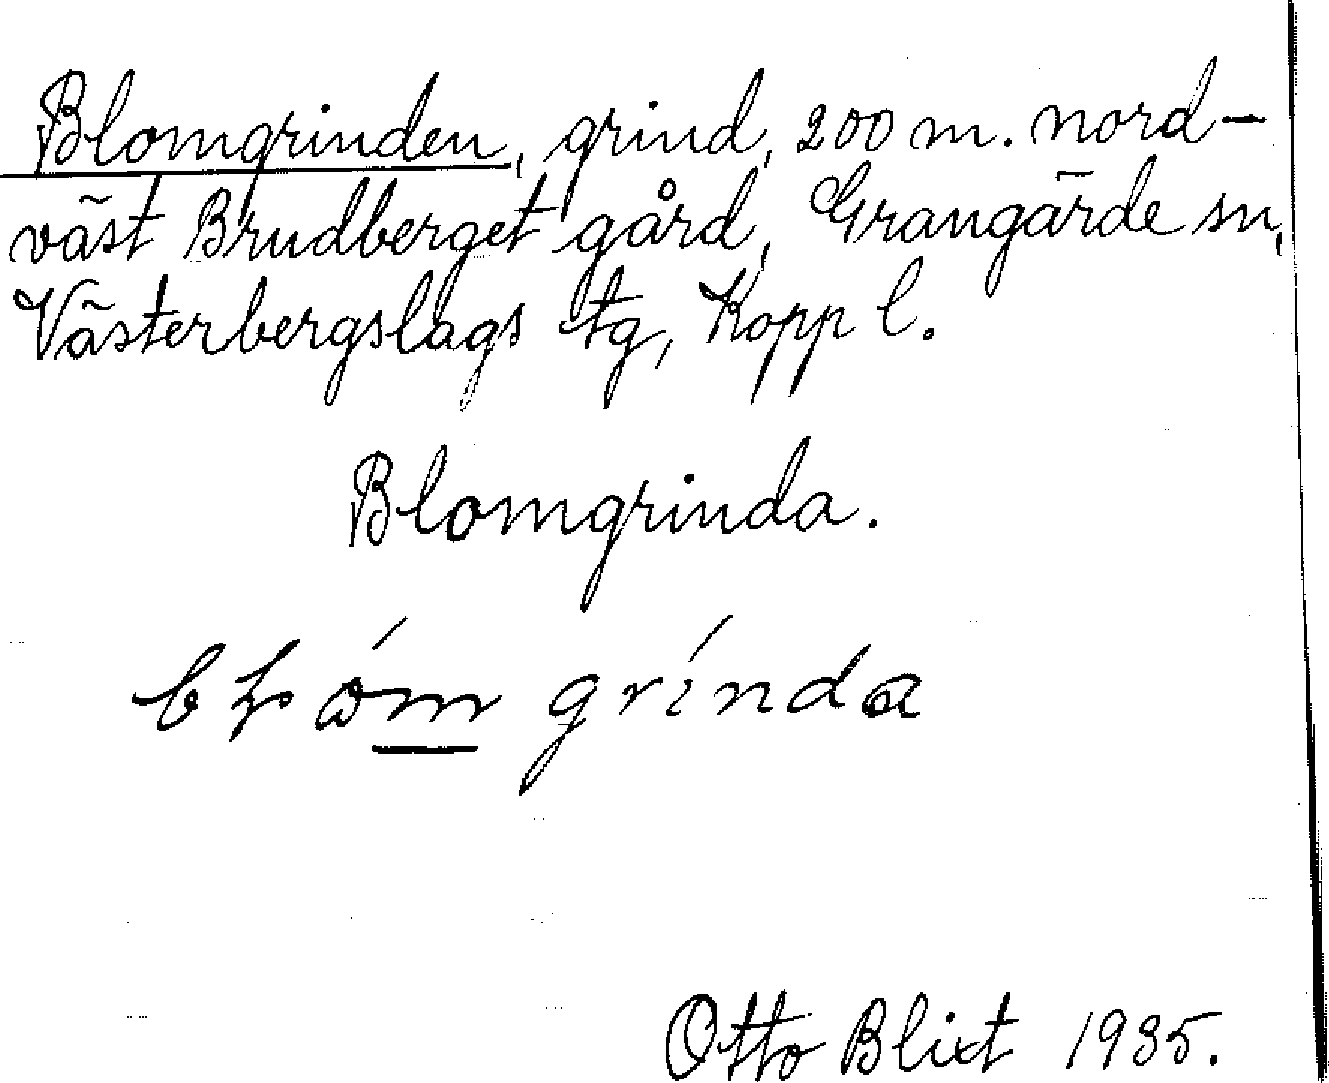 Blomgrinden, grind, 200 m. nord-
väst Brudberget gård, Grangärde sn,
Västerbergslags tg, Kopp l.
Blomgrinda.
grínda
Otto Blixt 1935.